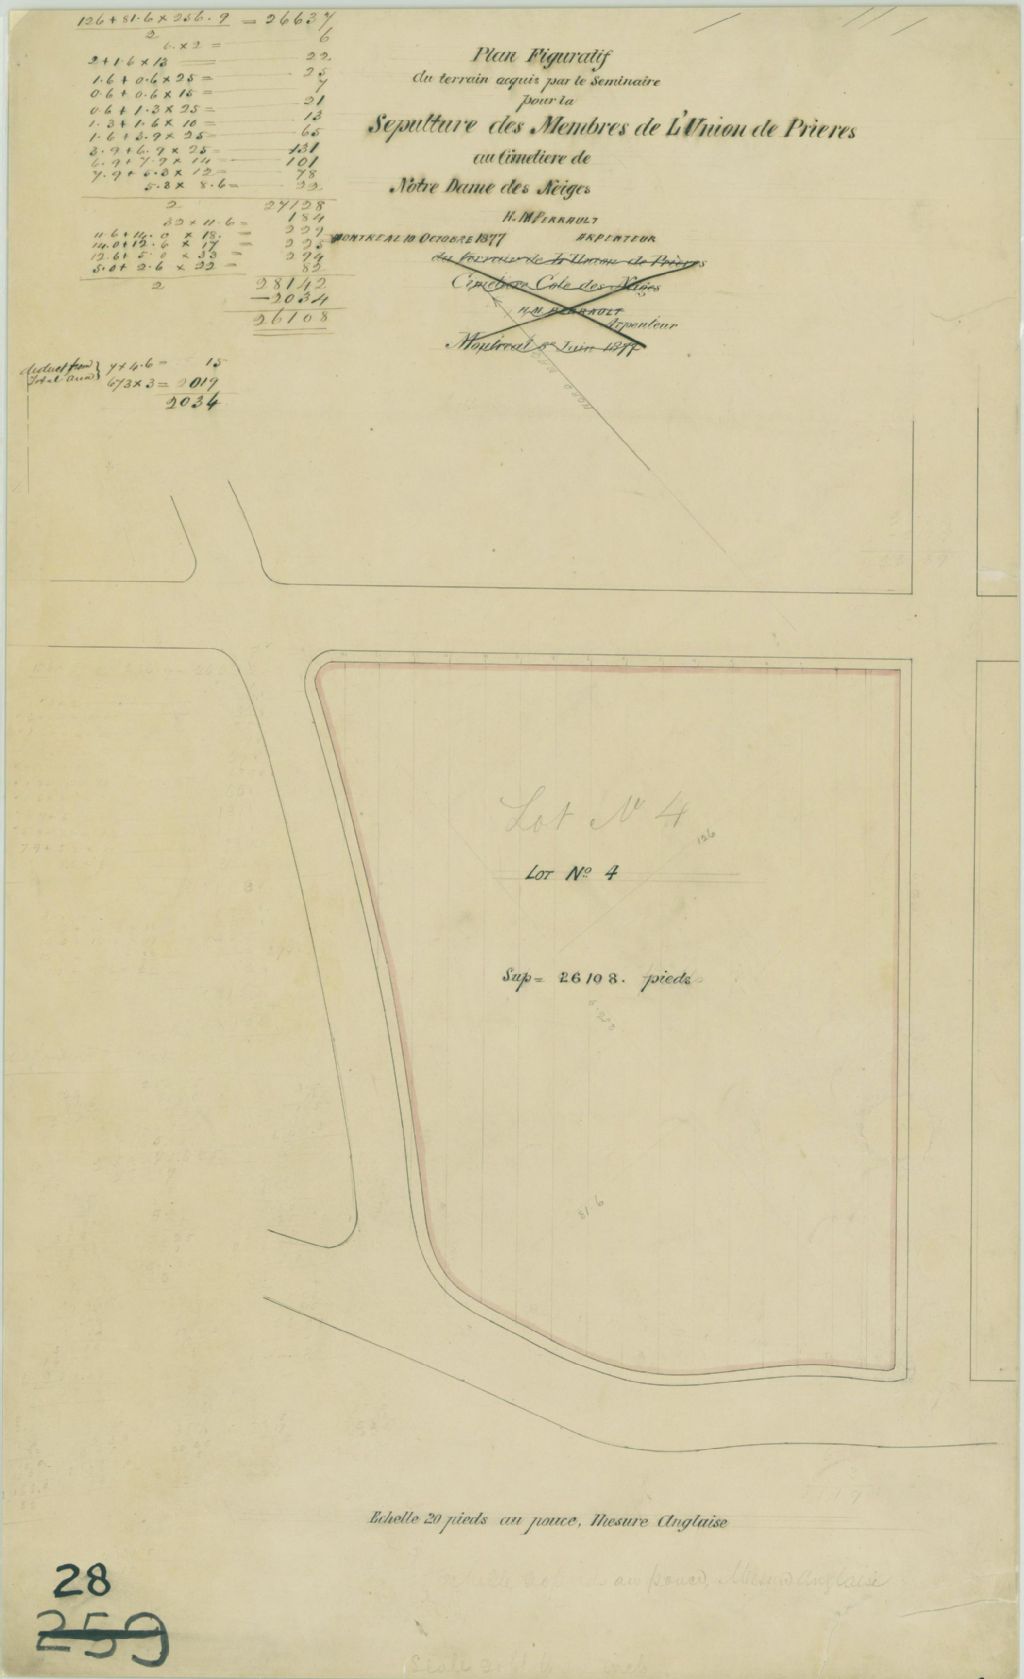 126 + 81.6 x 256.9 = 26637
2
6. x 2 = 6
2 + 1.6 x 13 = 22
1.6 + 0.6 x 25 = 25
0.6 + 0.6 x 15 = 7
0.6 + 1.3 x 25 = 21
1.3 + 1.6 x 10 = 13
1.6 + 3.9 x 25 = 65
3.9 + 6.9 x 25 = 131
6.9 + 7.9 x 14 = 101
7.9 + 5.3 x 12 = 78
5.3 x 8.6 = 22
2
27128
32 x 11.6 = 184
11.6 + 14.0 x 18. = 229
14.0 + 12.6 x 17 = 225
12.6 + 5.0 x 33 = 294
5.0 + 2.6 x 22 = 82
2
28142
— 2034
26108
deduct from
Total area
7 x 4.6 = 15
673 x 3 = 2019
2034
Plan Figuratif
du terrain acquis par le Seminaire
pour la
Sepulture des Membres de L'Union de Prieres
au Cimetiere de
Notre Dame des Neiges
H. M. PERRAULT
MONTREAL 10 OCTOBRE 1877 ARPENTEUR
du terrain de L'Union de Prières
Cimetiere Cote des Neiges
H. M. PERRAULT
Arpenteur
Montreal 8e Juin 1877
Lot N 4
126
LOT No 4
Sup = 26108. pieds
81.6
Echelle 20 pieds au pouce, Mesure Anglaise
au pouce, Mesure Anglaise
28
259